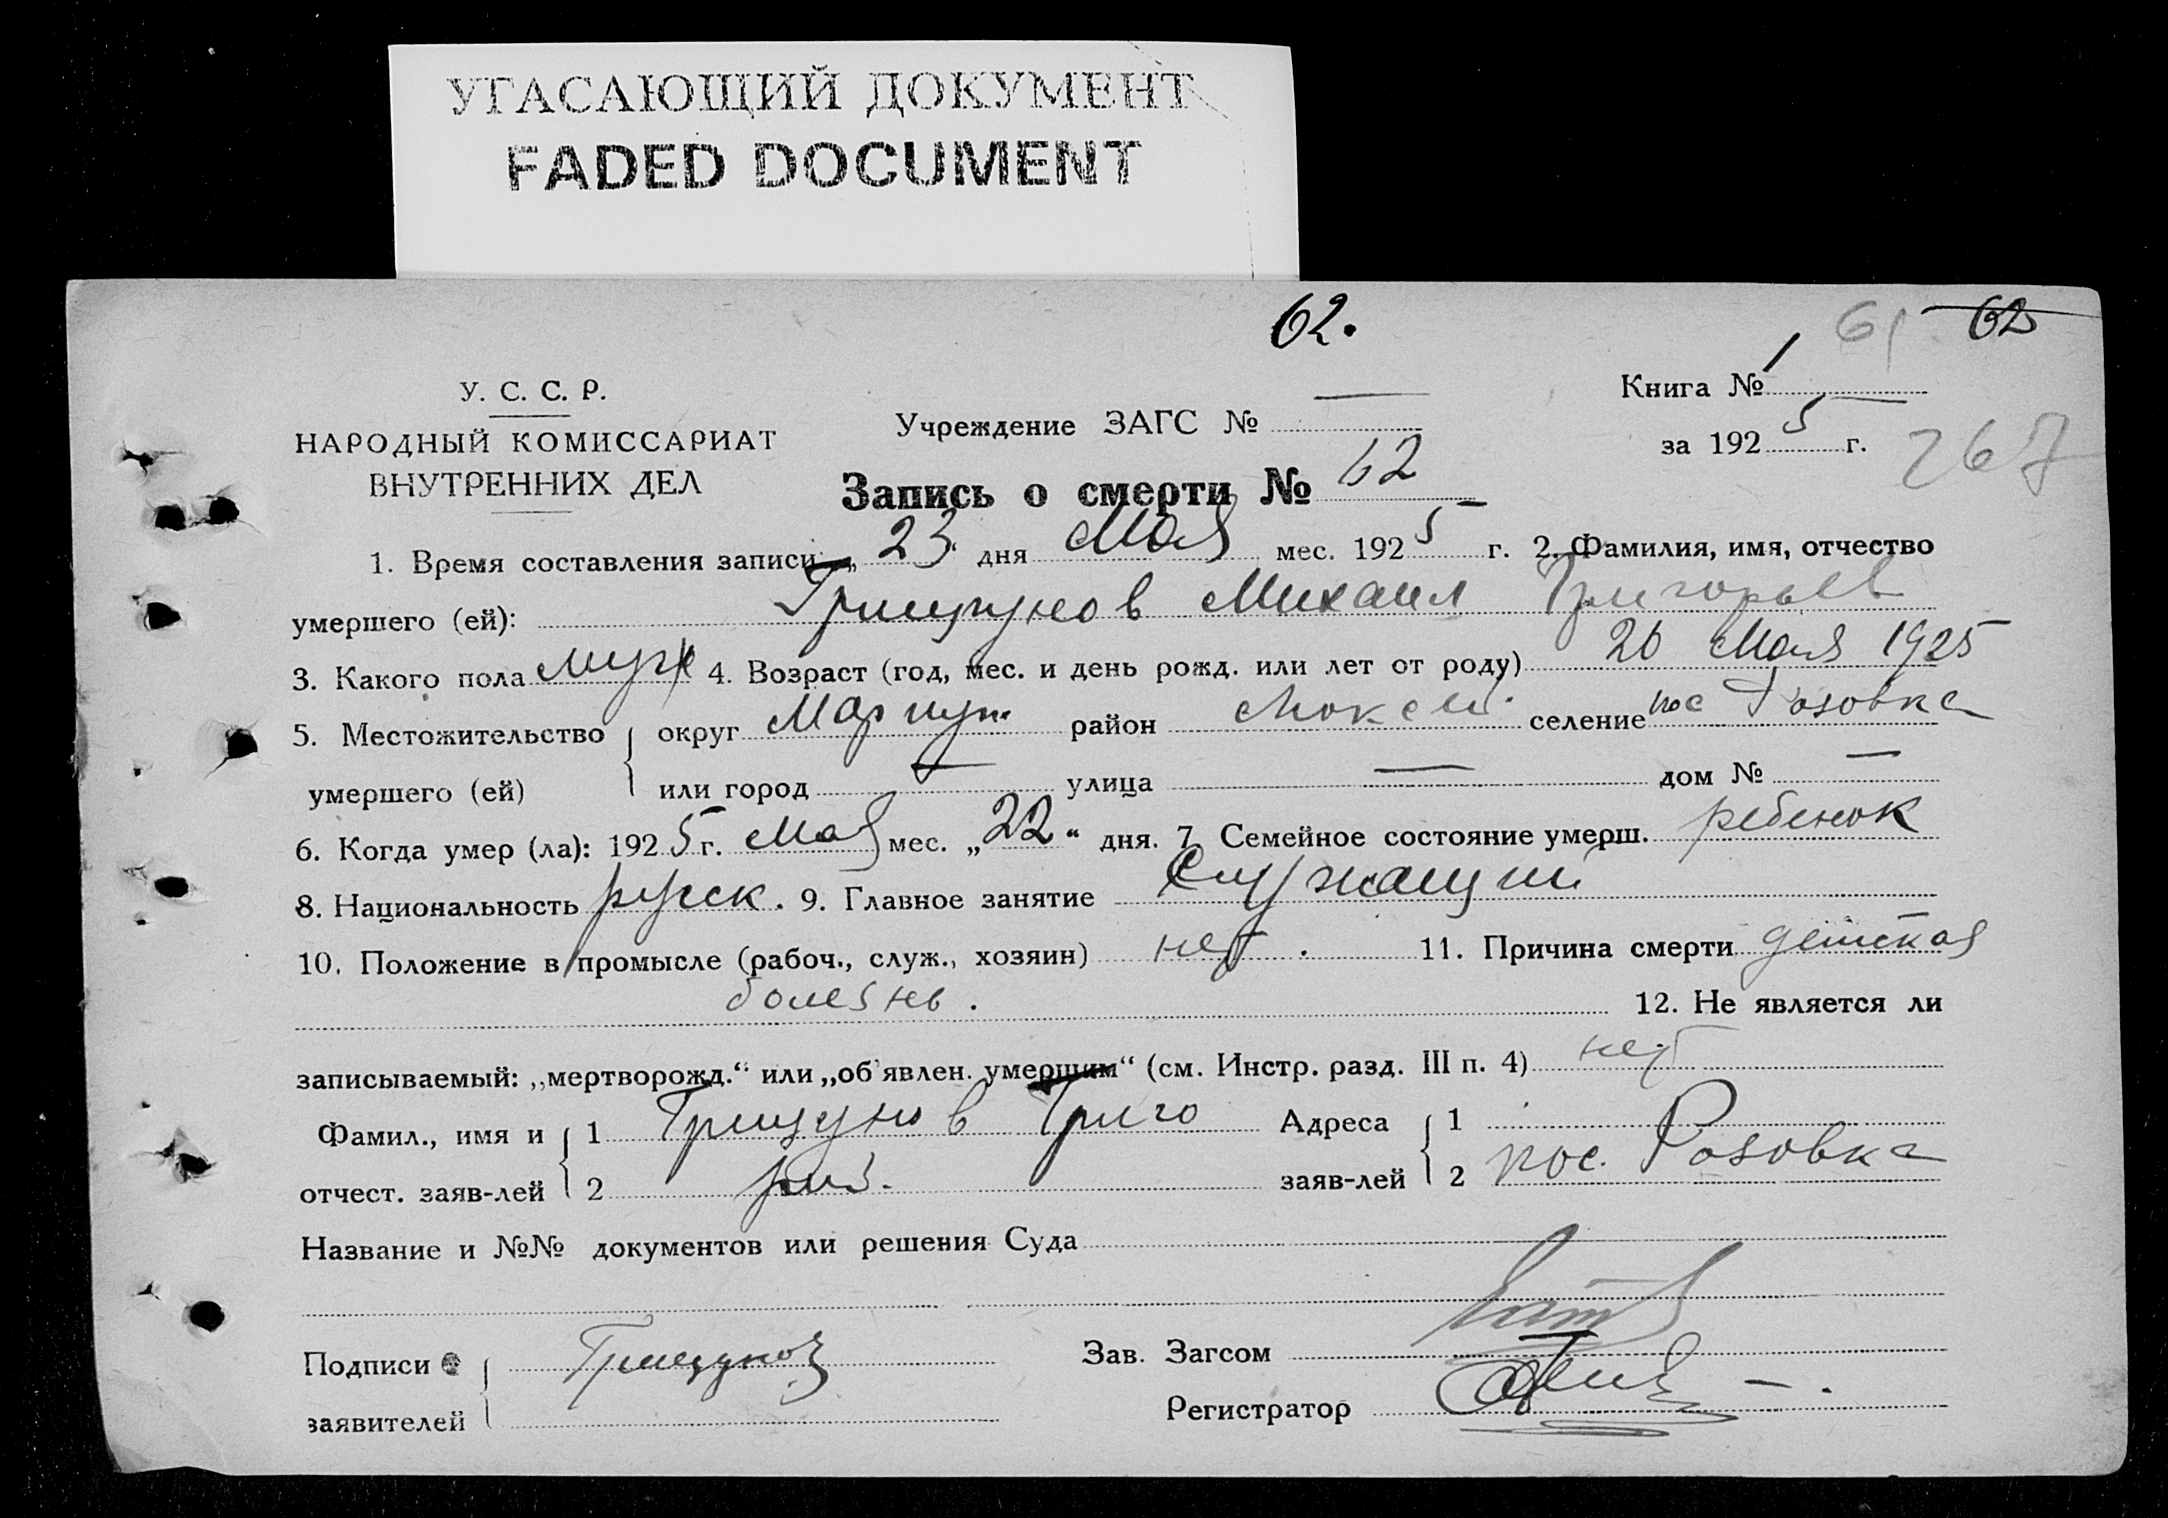 УГАСАЮЩИЙ ДОКУМЕНТ
FADED DOCUMENT
62.
61 62
У. С. С. Р.
НАРОДНЫЙ КОМИССАРИАТ
ВНУТРЕННИХ ДЕЛ
Учреждение ЗАГС № —
Книга № 1
за 1925 г.
267
Запись о смерти № 62
1. Время составления записи: „23 дня Мая мес. 1925 г. 2. Фамилия, имя, отчество
умершего (ей): Грищунов Михаил Григорьев
3. Какого пола муж 4. Возраст (год, мес. и день рожд. или лет от роду) 20 Мая 1925
5. Местожительство умершего (ей) округ Мариуп. район селение пос Розовка
или город — улица — дом № —
6. Когда умер (ла): 1925 г. Мая мес. „22“ дня. 7. Семейное состояние умерш. ребенок
8. Национальность русск. 9. Главное занятие Служащий
10. Положение в промысле (рабоч., служ., хозяин) нет. 11. Причина смерти детская
болезнь. 12. Не является ли
записываемый: „мертворожд.“ или „об'явлен. умершим“ (см. Инстр. разд. III п. 4) нет
Фамил., имя и отчест. заяв-лей 1 Грищунов Григо Адреса заяв-лей 1
2 рий. 2 пос. Розовка
Название и №№ документов или решения Суда
Подписи заявителей Грищунов Зав. Загсом
Регистратор